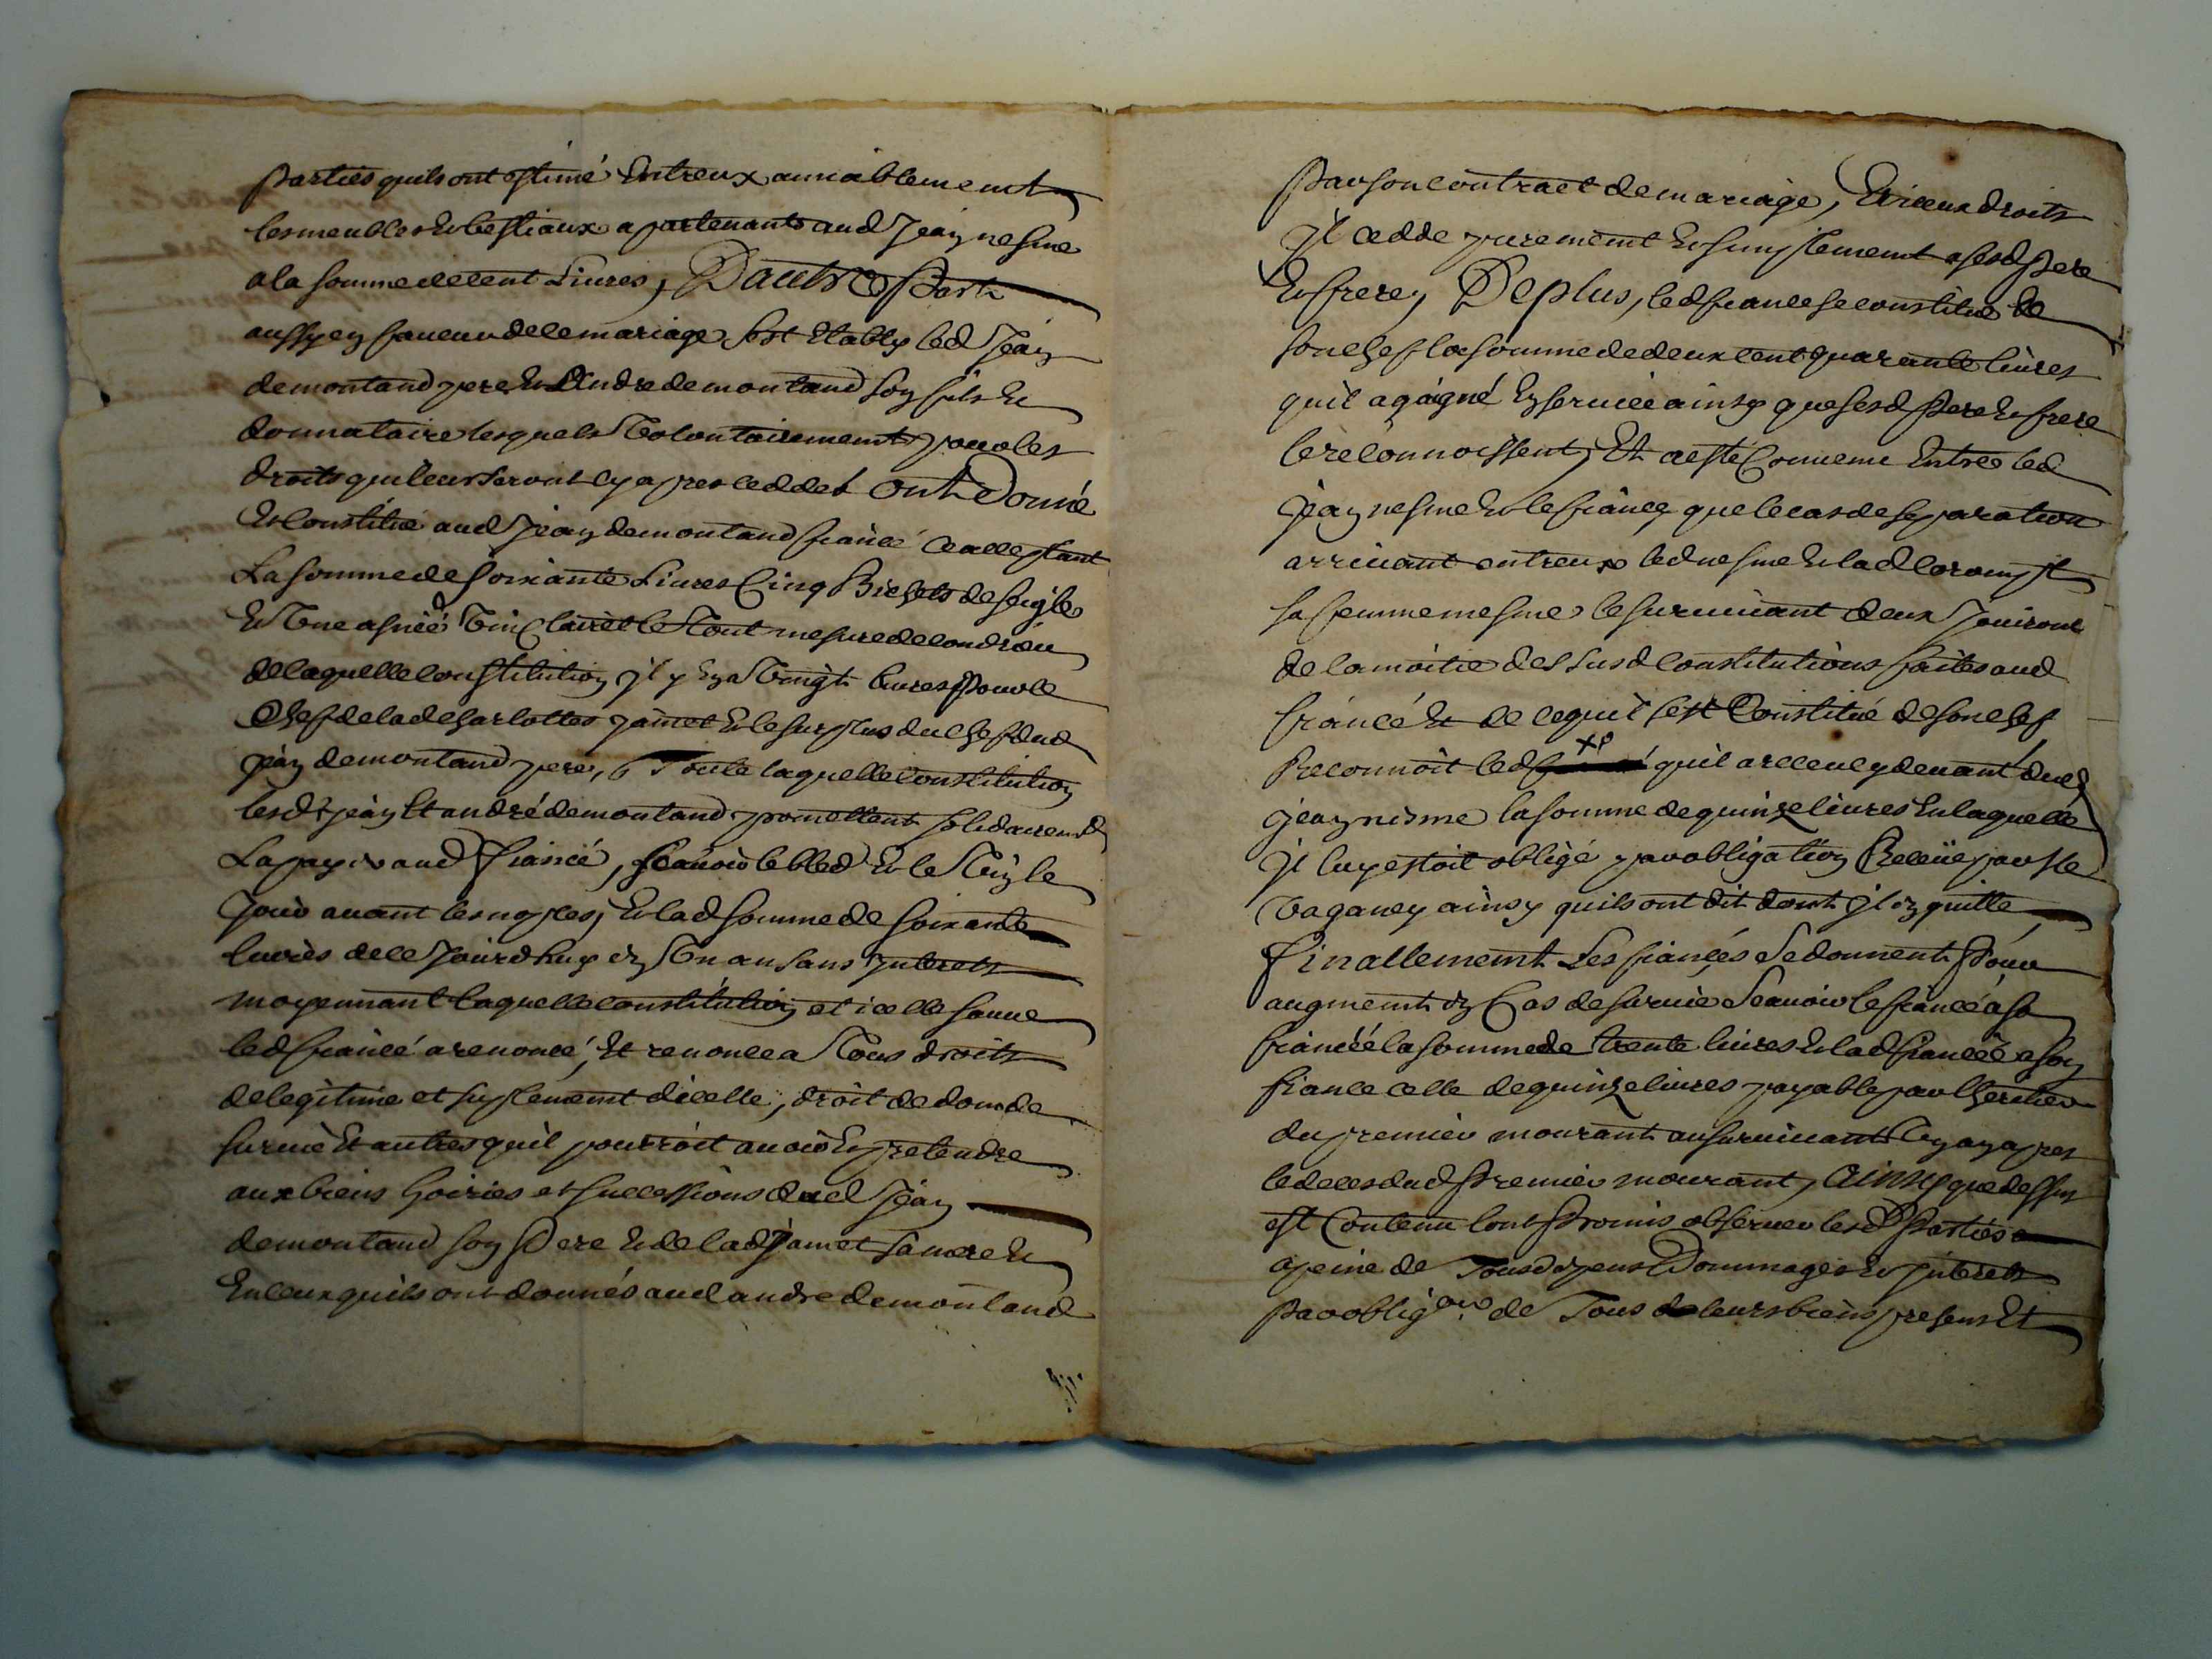 parties quils ont estimé Entreux amiablement
les meubles & bestiaux apartenants aud Jean nesme
a la somme de cent Livres, D'autre Part
aussy en faveur de ce mariage sest Etably led Jean
demontand pere & André demontand son fils &
donnataire lesquels Volontairement pour les
droits qui leur seront cy apres ceddes ont Donné
& Constitué aud Jean demontand fiancé acceptant
La somme de soixante Livres Cinq Bichets de seigle
& Une asnéé Vin clairet le Tout mesure de condrieu
de laquelle constitution il y En a Vingt livres pour le
Chef de lad charlotte jamet & le surplus du chef dud
jean demontand pere, Toute laquelle constitution
lesdts jean Et andré demontand promettent solidairemt
La payer aud fiancé, scavoir le bled & le Vin le
Jour avant les nopces, & lad somme de soixante
livres de ce Jourdhuy en Un an sans interets
moyennant laquelle constitution et icelle sauve
led fiancé a renoncé, Et renonce a Tous droits
de legitime et suplement dicelle, droit de don de
survie Et autres quil pourroit avoir & pretendre
aux biens hoiries et successions dud Jean
demontand son Pere & de lad jamet sa mere &
En ceux quils ont donnés aud andre demontand
Par son contract de mariage, & iceux droits
Il cedde purement & simplement a sesd Pere
& frere, De plus, led fiance se constitue de
son chef la somme de deux cent quarante livres
quil a gaigné En service ainsy que sesd Pere & frere
le reconnoissent, Et a esté Convenu Entre led
jean nesme & le fiancé que le cas de separation
arrivant entreux led nesme & lad
sa femme mesme le survivant deux Jouiront
de la moitié des susd constitutions faites aud
fiancé Et de ce quil sest Constitué de son chef
Reconnoit led quil a receu cy devant dud
jean nisme la somme de quinze livres En laquelle
Il luy estoit obligé par obligation Receüe par Me
Vaganey ainsy quils ont dit dont il en quitte
Finallement Les fiancés se donnent Pour
augment en Cas de survie Scavoir le fiancé a sa
fiancéé la somme de trente livres & lad fiancéé a son
fiance celle de quinze livres payable par lheritier
du premier mourant au survivant En an apres
le deces dud Premier mourant, Ainsy que dessus
est Contenu lont Promis observer lesd Parties
a peine de Tous depens Dommages & interets
Par obligon de Tous leurs biens presens Et